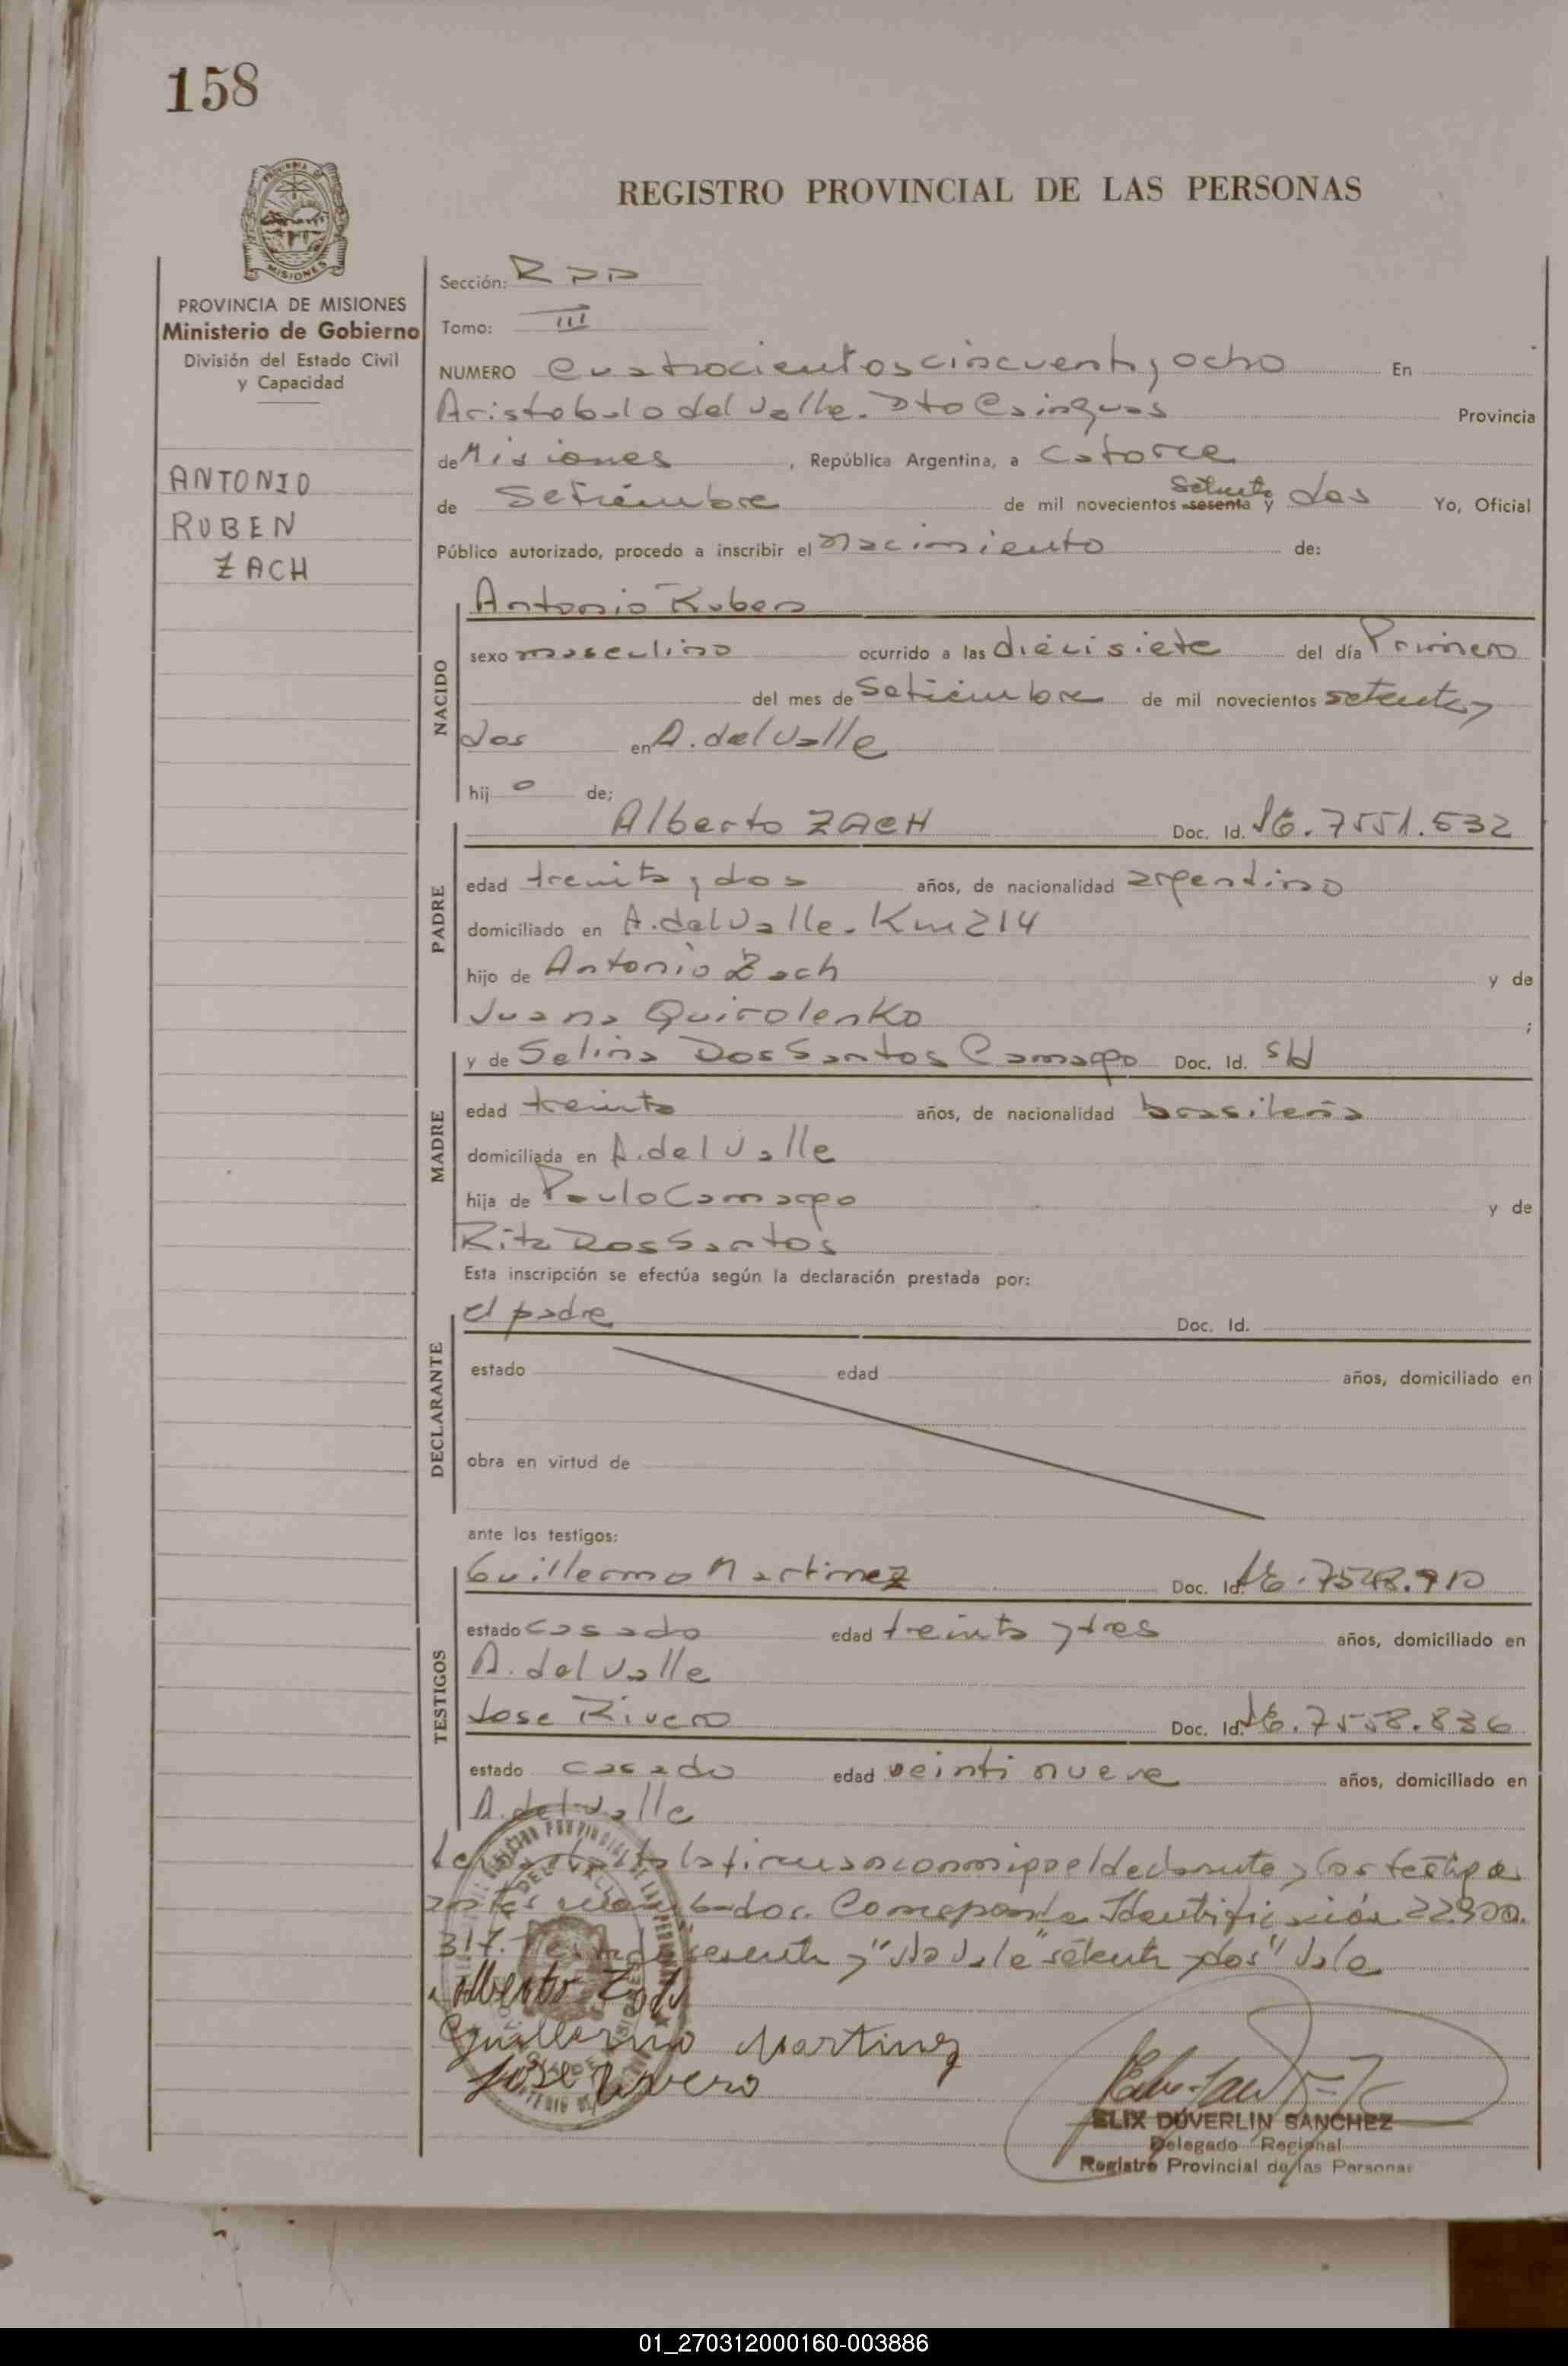 158
REGISTRO PROVINCIAL DE LAS PERSONAS
MISIONES
PROVINCIA DE MISIONES
Ministerio de Gobierno
División del Estado Civil
y Capacidad
ANTONIO
RUBEN
ZACH
Sección:
Tomo: III
NUMERO cuatrocientos cincuenta y ocho En
Aristobulo del Valle. Dto Cainguas Provincia
de Misiones, República Argentina, a catorce
de Setiembre de mil novecientos sesenta setenta y dos Yo, Oficial
Público autorizado, procedo a inscribir el Nacimiento de:
NACIDO
Antonio Ruben
sexo masculino ocurrido a las diecisiete del día Primero
del mes de Setiembre de mil novecientos setenta y
dos en A. del Valle
hij o de;
PADRE
Alberto ZACH Doc. Id. 7551.532
edad treinta y dos años, de nacionalidad argentino
domiciliado en A. del Valle. Km 214
hijo de Antonio Zach y de
Juana Quirolenko ;
MADRE
y de Selina Dos Santos Camargo Doc. Id. s/d
edad treinta años, de nacionalidad brasileña
domiciliada en A. del Valle
hija de Paulo Camargo y de
Rita Dos Santos
Esta inscripción se efectúa según la declaración prestada por:
DECLARANTE
el padre Doc. Id.
estado edad años, domiciliado en
obra en virtud de
ante los testigos:
TESTIGOS
Guillermo Martinez Doc. Id. 7548.910
estado casado edad treinta y tres años, domiciliado en
A. del Valle
Jose Rivero Doc. Id. 7558.836
estado casado edad veintinueve años, domiciliado en
A. del Valle
la firman conmigo el declarante y los testigos
antes Corresponde Identificación 22.900.
317. sesenta y "No Vale" setenta y dos" Vale
Alberto Zach
Guillermo Martinez
Jose Rivero
ELIX DUVERLIN SANCHEZ
Delegado Regional
Registro Provincial de las Personas
01_270312000160-003886